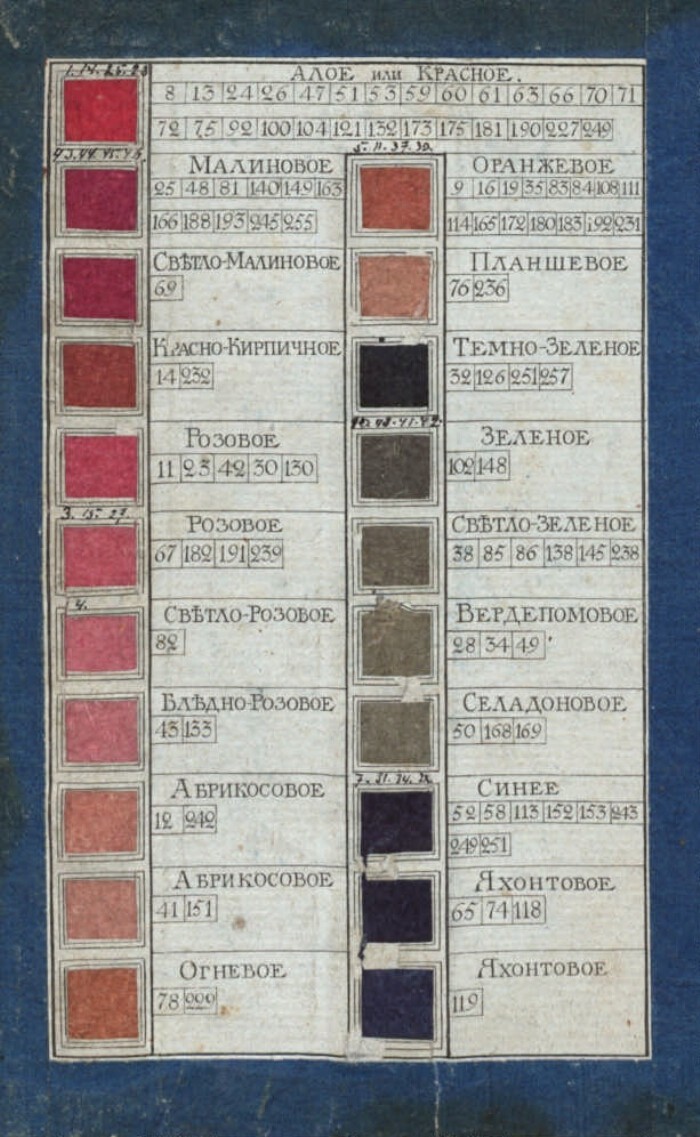 АЛОЕ или КРАСНОЕ.
8 13 24 26 47 51 53 59 60 61 63 66 70 71
72 75 92 100 104 121 132 173 175 181 190 227 249
МАЛИНОВОЕ
25 48 81 140 149 163
166 188 193 245 255
СВѢТЛО-МАЛИНОВОЕ
69
КРАСНО-КИРПИЧНОЕ
14 232
РОЗОВОЕ
11 23 42 30 130
3. 15. 27.
РОЗОВОЕ
67 182 191 239
4.
СВѢТЛО-РОЗОВОЕ
82
БЛѢДНО-РОЗОВОЕ
43 133
АБРИКОСОВОЕ
12 242
АБРИКОСОВОЕ
41 151
ОГНЕВОЕ
78 229
ОРАНЖЕВОЕ
9 16 19 35 83 84 108 111
114 165 172 180 183 192 231
ПЛАНШЕВОЕ
76 236
ТЕМНО-ЗЕЛЕНОЕ
32 126 251 257
ЗЕЛЕНОЕ
102 148
СВѢТЛО-ЗЕЛЕНОЕ
38 85 86 138 145 238
ВЕРДЕПОМОВОЕ
28 34 49
СЕЛАДОНОВОЕ
50 168 169
СИНЕЕ
52 58 113 152 153 243
249 251
ЯХОНТОВОЕ
65 74 118
ЯХОНТОВОЕ
119